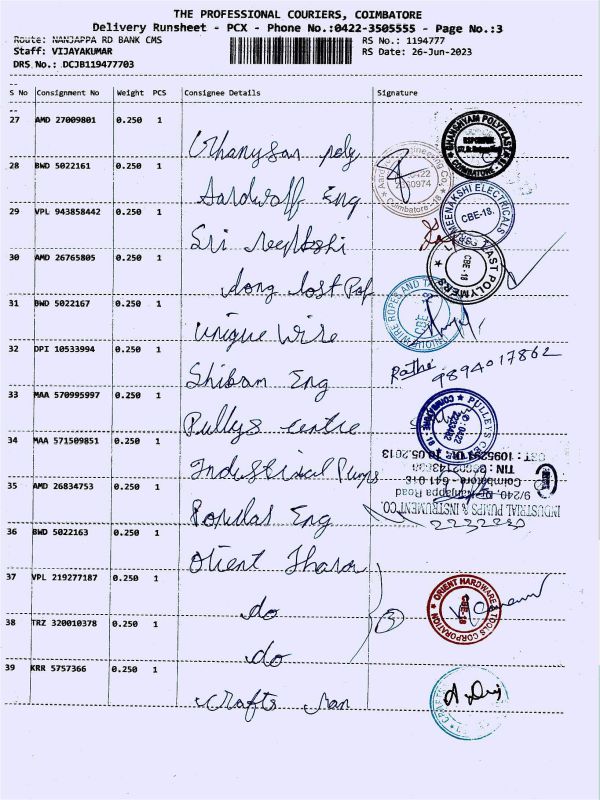 THE PROFESSIONAL COURIERS, COIMBATORE
Delivery Runsheet - PCX - Phone No.:0422-3505555 - Page No.:3
Route: NANJAPPA RD BANK CMS
RS No.: 1194777
Staff: VIJAYAKUMAR
RS Date: 26-Jun-2023
DRS No.: DCJB119477703
S No Consignment No Weight PCS Consignee Details Signature
27 AMD 27009801 0.250 1
GHANSHYAM POLYPLAST
COIMBATORE
28 BWD 5022161 0.250 1
Aardwolf Eng
Coimbatore - 18
29 VPL 943858442 0.250 1
MEENAKSHI ELECTRICALS
CBE-18.
Sri
30 AMD 26765805 0.250 1
LAST POLYMERS
CBE - 18
long last
31 BWD 5022167 0.250 1
WIRE ROPER AND
Unique Wire
32 DPI 10533994 0.250 1
Rathe 9894017862
Shiban Eng
33 MAA 570995997 0.250 1
PULLEYS CENTRE
Pullys centre
34 MAA 571509851 0.250 1
Industrical Pumps
INDUSTRIAL PUMPS & INSTRUMENT CO.
Coimbatore - 641 018
35 AMD 26834753 0.250 1
Eng
36 BWD 5022163 0.250 1
Orient
37 VPL 219277187 0.250 1
ORIENT HARDWARE & TOOLS CORPORATION
CBE-18
do
3
38 TRZ 320010378 0.250 1
do
39 KRR 5757366 0.250 1
Crafts man